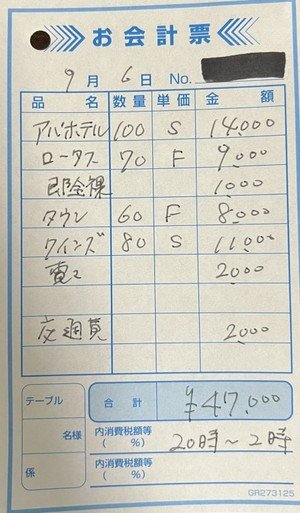 お会計票
9月 6日 No.
品名 数量 単価 金額
アパホテル 100 S 14000
ロータス 70 F 9000
即陰裸 1000
タウン 60 F 8000
ワインズ 80 S 11000
電マ 2000
交通費 2000
テーブル 合計 ¥47,000
名様 内消費税額等 ( %) 20時〜2時
係 内消費税額等 ( %)
GR273125